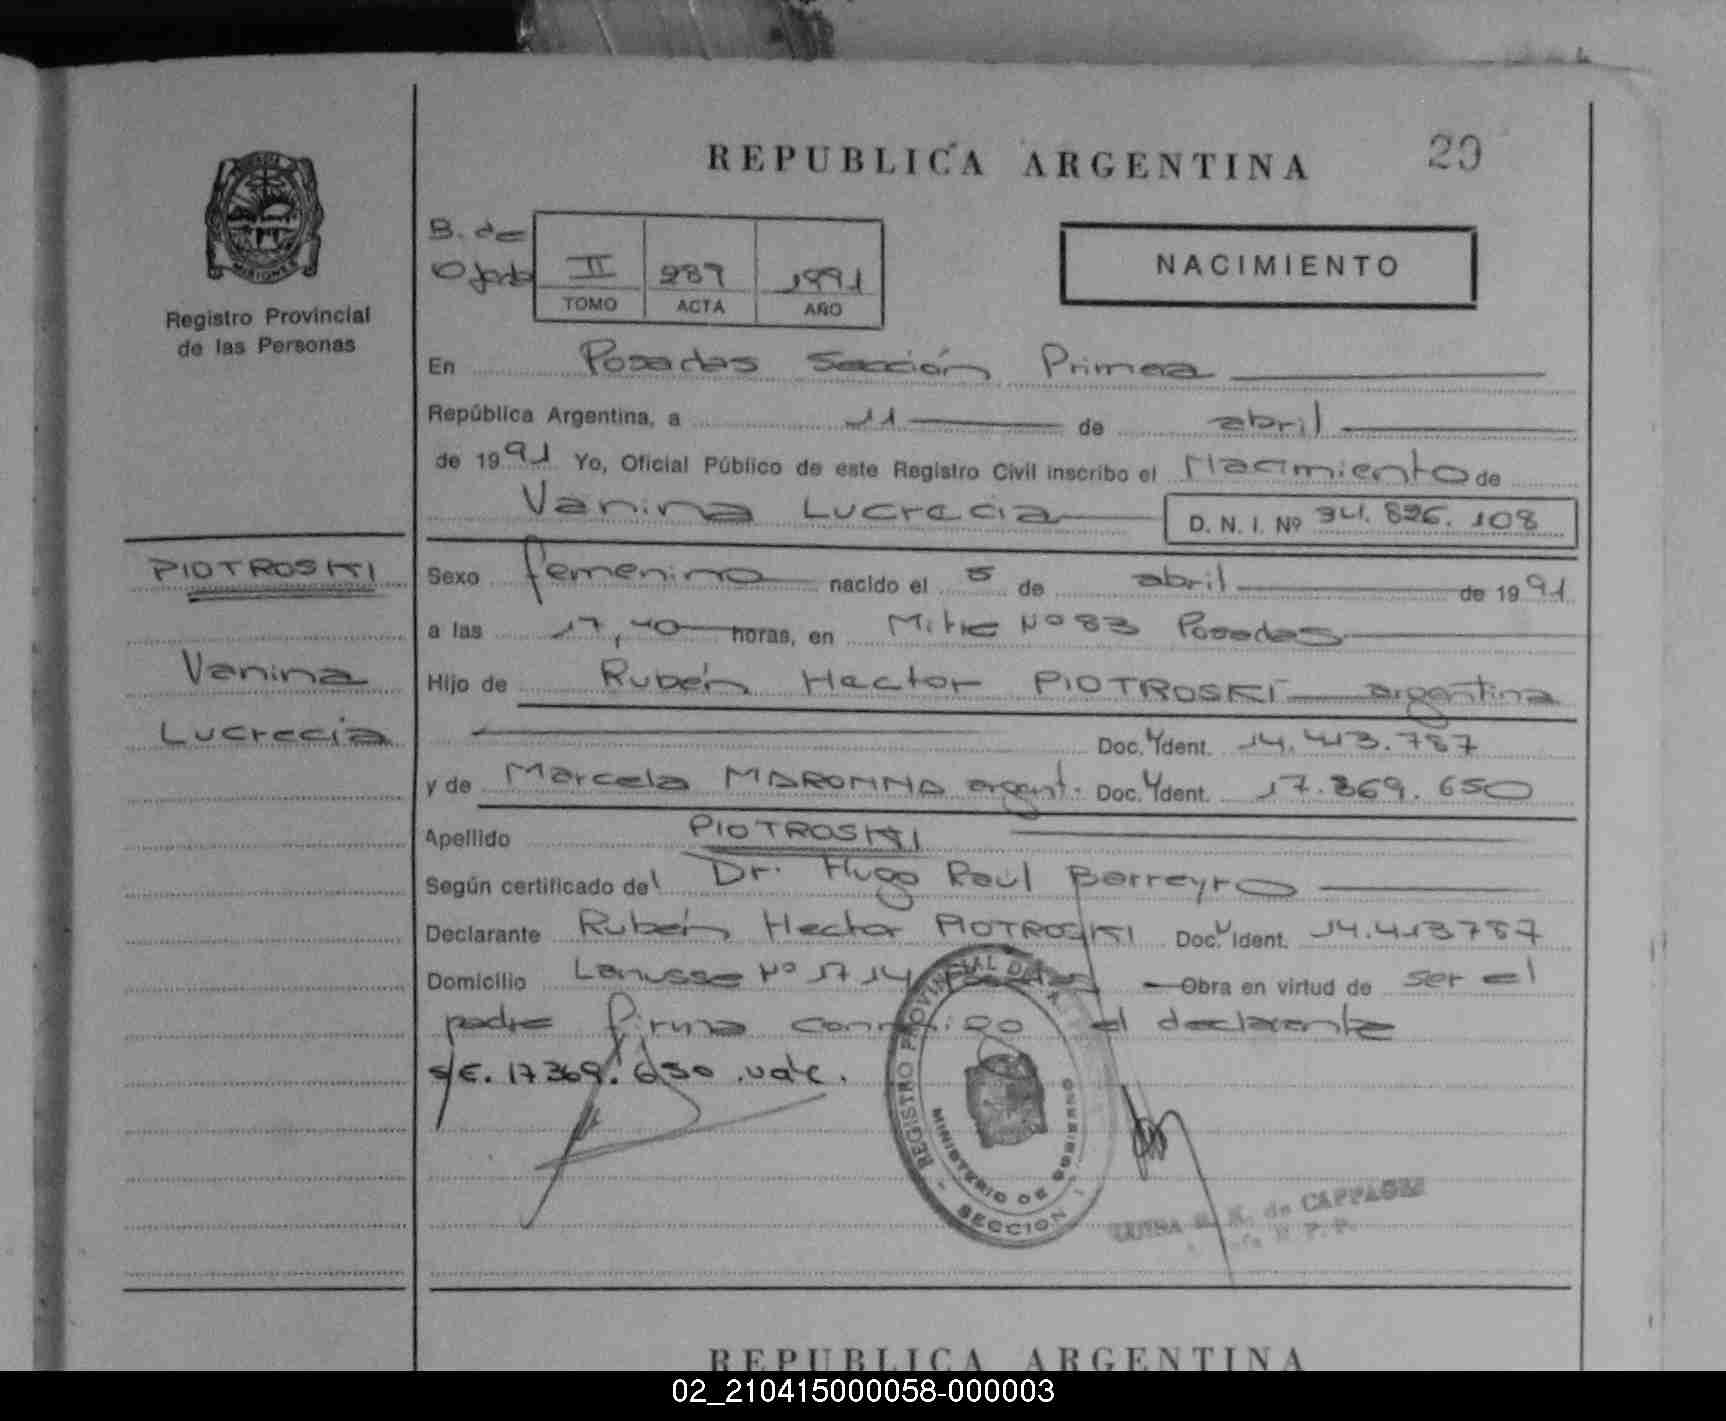 REPUBLICA ARGENTINA
29
MISIONES
Registro Provincial
de las Personas
B. de
II 289 1991
TOMO ACTA AÑO
NACIMIENTO
En Posadas Sección Primera
República Argentina, a 11 de abril
de 1991 Yo, Oficial Público de este Registro Civil inscribo el Nacimiento de
Vanina Lucrecia D. N. I. Nº 34. 826. 108
PIOTROSKI
Vanina
Lucrecia
Sexo femenino nacido el 5 de abril de 1991
a las 17,40 horas, en Mitre Nº 83 Posadas
Hijo de Rubén Hector PIOTROSKI argentina
Doc. Ident. 14.413.787
y de Marcela MAROMNA argent. Doc. Ident. 17.369.650
Apellido PIOTROSKI
Según certificado del Dr. Hugo Raúl Barreyro
Declarante Rubén Hector PIOTROSKI Doc. Ident. 14.413787
Domicilio Lanusse Nº 1714 Posadas Obra en virtud de ser el
padre firma conmigo el declarante
s/E. 17369.650 .vale.
REGISTRO PROVINCIAL DE LA
MINISTERIO DE GOBIERNO
SECCION
de
REPUBLICA ARGENTINA
02_210415000058-000003